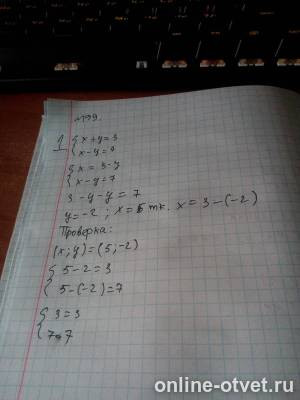 №199.
1 { x+y=3
x-y=7
{ x = 3-y
x-y=7
3-y-y=7
y=-2 ; x=5 т.к. x = 3-(-2)
Проверка:
(x;y)=(5;-2)
{ 5-2=3
5-(-2)=7
{ 3=3
7=7
online-otvet.ru